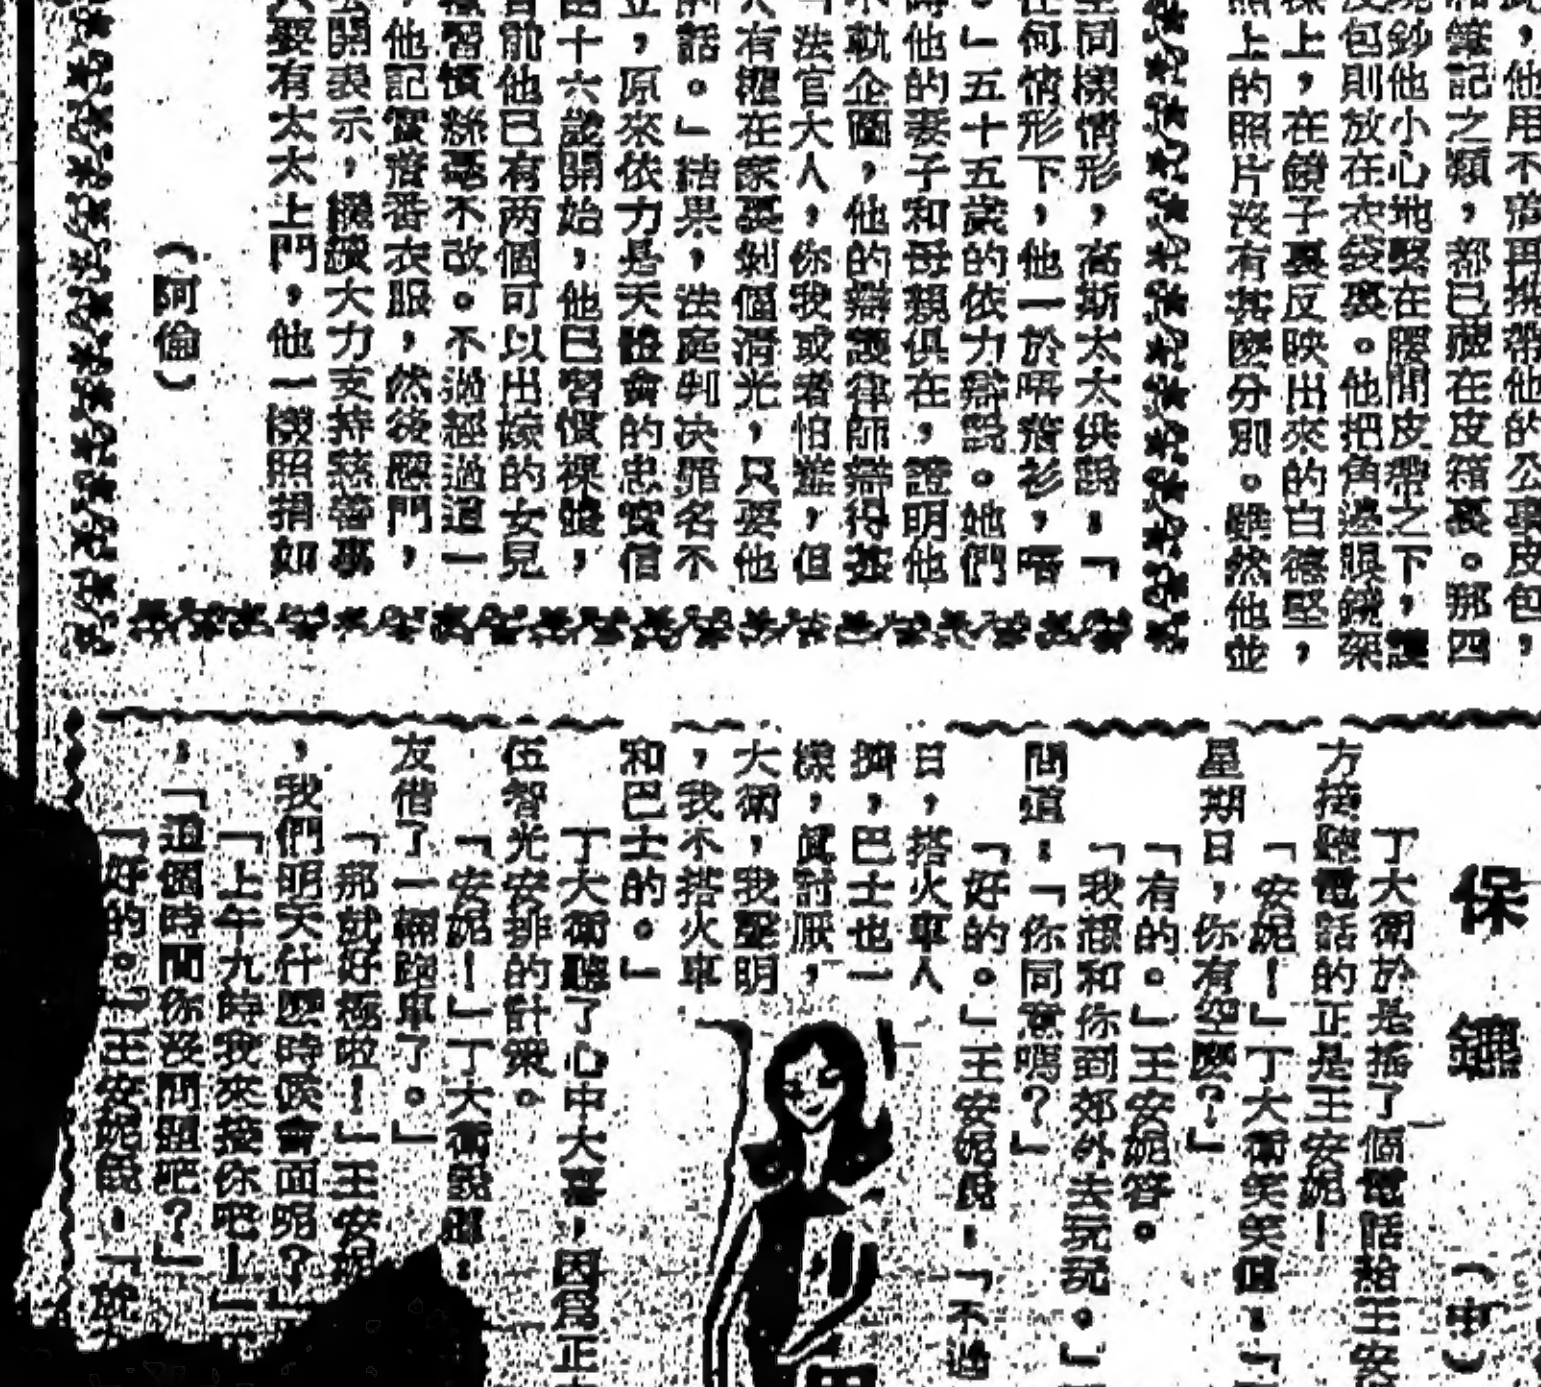 此，他用不着再攜帶他的公事皮包，
和鎗記之類，都已藏在皮箱裏。那四
現鈔他小心地緊在腰間皮帶之下，護
皮包則放在衣袋裏。他把角邊眼鏡架
樑上，在鏡子裏反映出來的白德堅，
照上的照片沒有甚麼分別。雖然他並
同樣情形，高斯太太供說：「
任何情形下，他一於唔着衫，唔
。」五十五歲的依力辯說。她們
時他的妻子和母親俱在，證明他
不軌企圖，他的辯護律師辯得甚
「法官大人，你我或者怕羞，但
人有權在家裏剝個清光，只要他
話。」結果，法庭判決罪名不
立，原來依力是天體會的忠實信
由十六歲開始，他已習慣裸體，
目前他已有两個可以出嫁的女兒
習慣絲毫不改。不過經過這一
他記實着番衣服，然後應門，
公開表示，繼續大力支持慈善事
要有太太上門，他一機照捐如
（阿倫）
保鑣（中）
丁大衛於是搖了個電話給王安
方接聽電話的正是王安妮！
「安妮！」丁大衛笑笑道：「
星期日，你有空麼？」
「有的。」王安妮答。
「我想和你到郊外去玩玩。」
問道：「你同意嗎？」
「好的。」王安妮說：「不過
日，搭火車人
擠，巴士也一
樣，眞討厭，
大衛，我聲明
，我不搭火車
和巴士的。」
丁大衛聽了心中大喜，因爲正
伍智光安排的計策。
「安妮！」丁大衛說道：
友借了一輛跑車了。」
「那就好極啦！」王安妮
，我們明天什麼時候會面呢？」
「上午九時我來接你吧！」
，「這個時間你沒問題吧？」
「好的。」王安妮說：「就